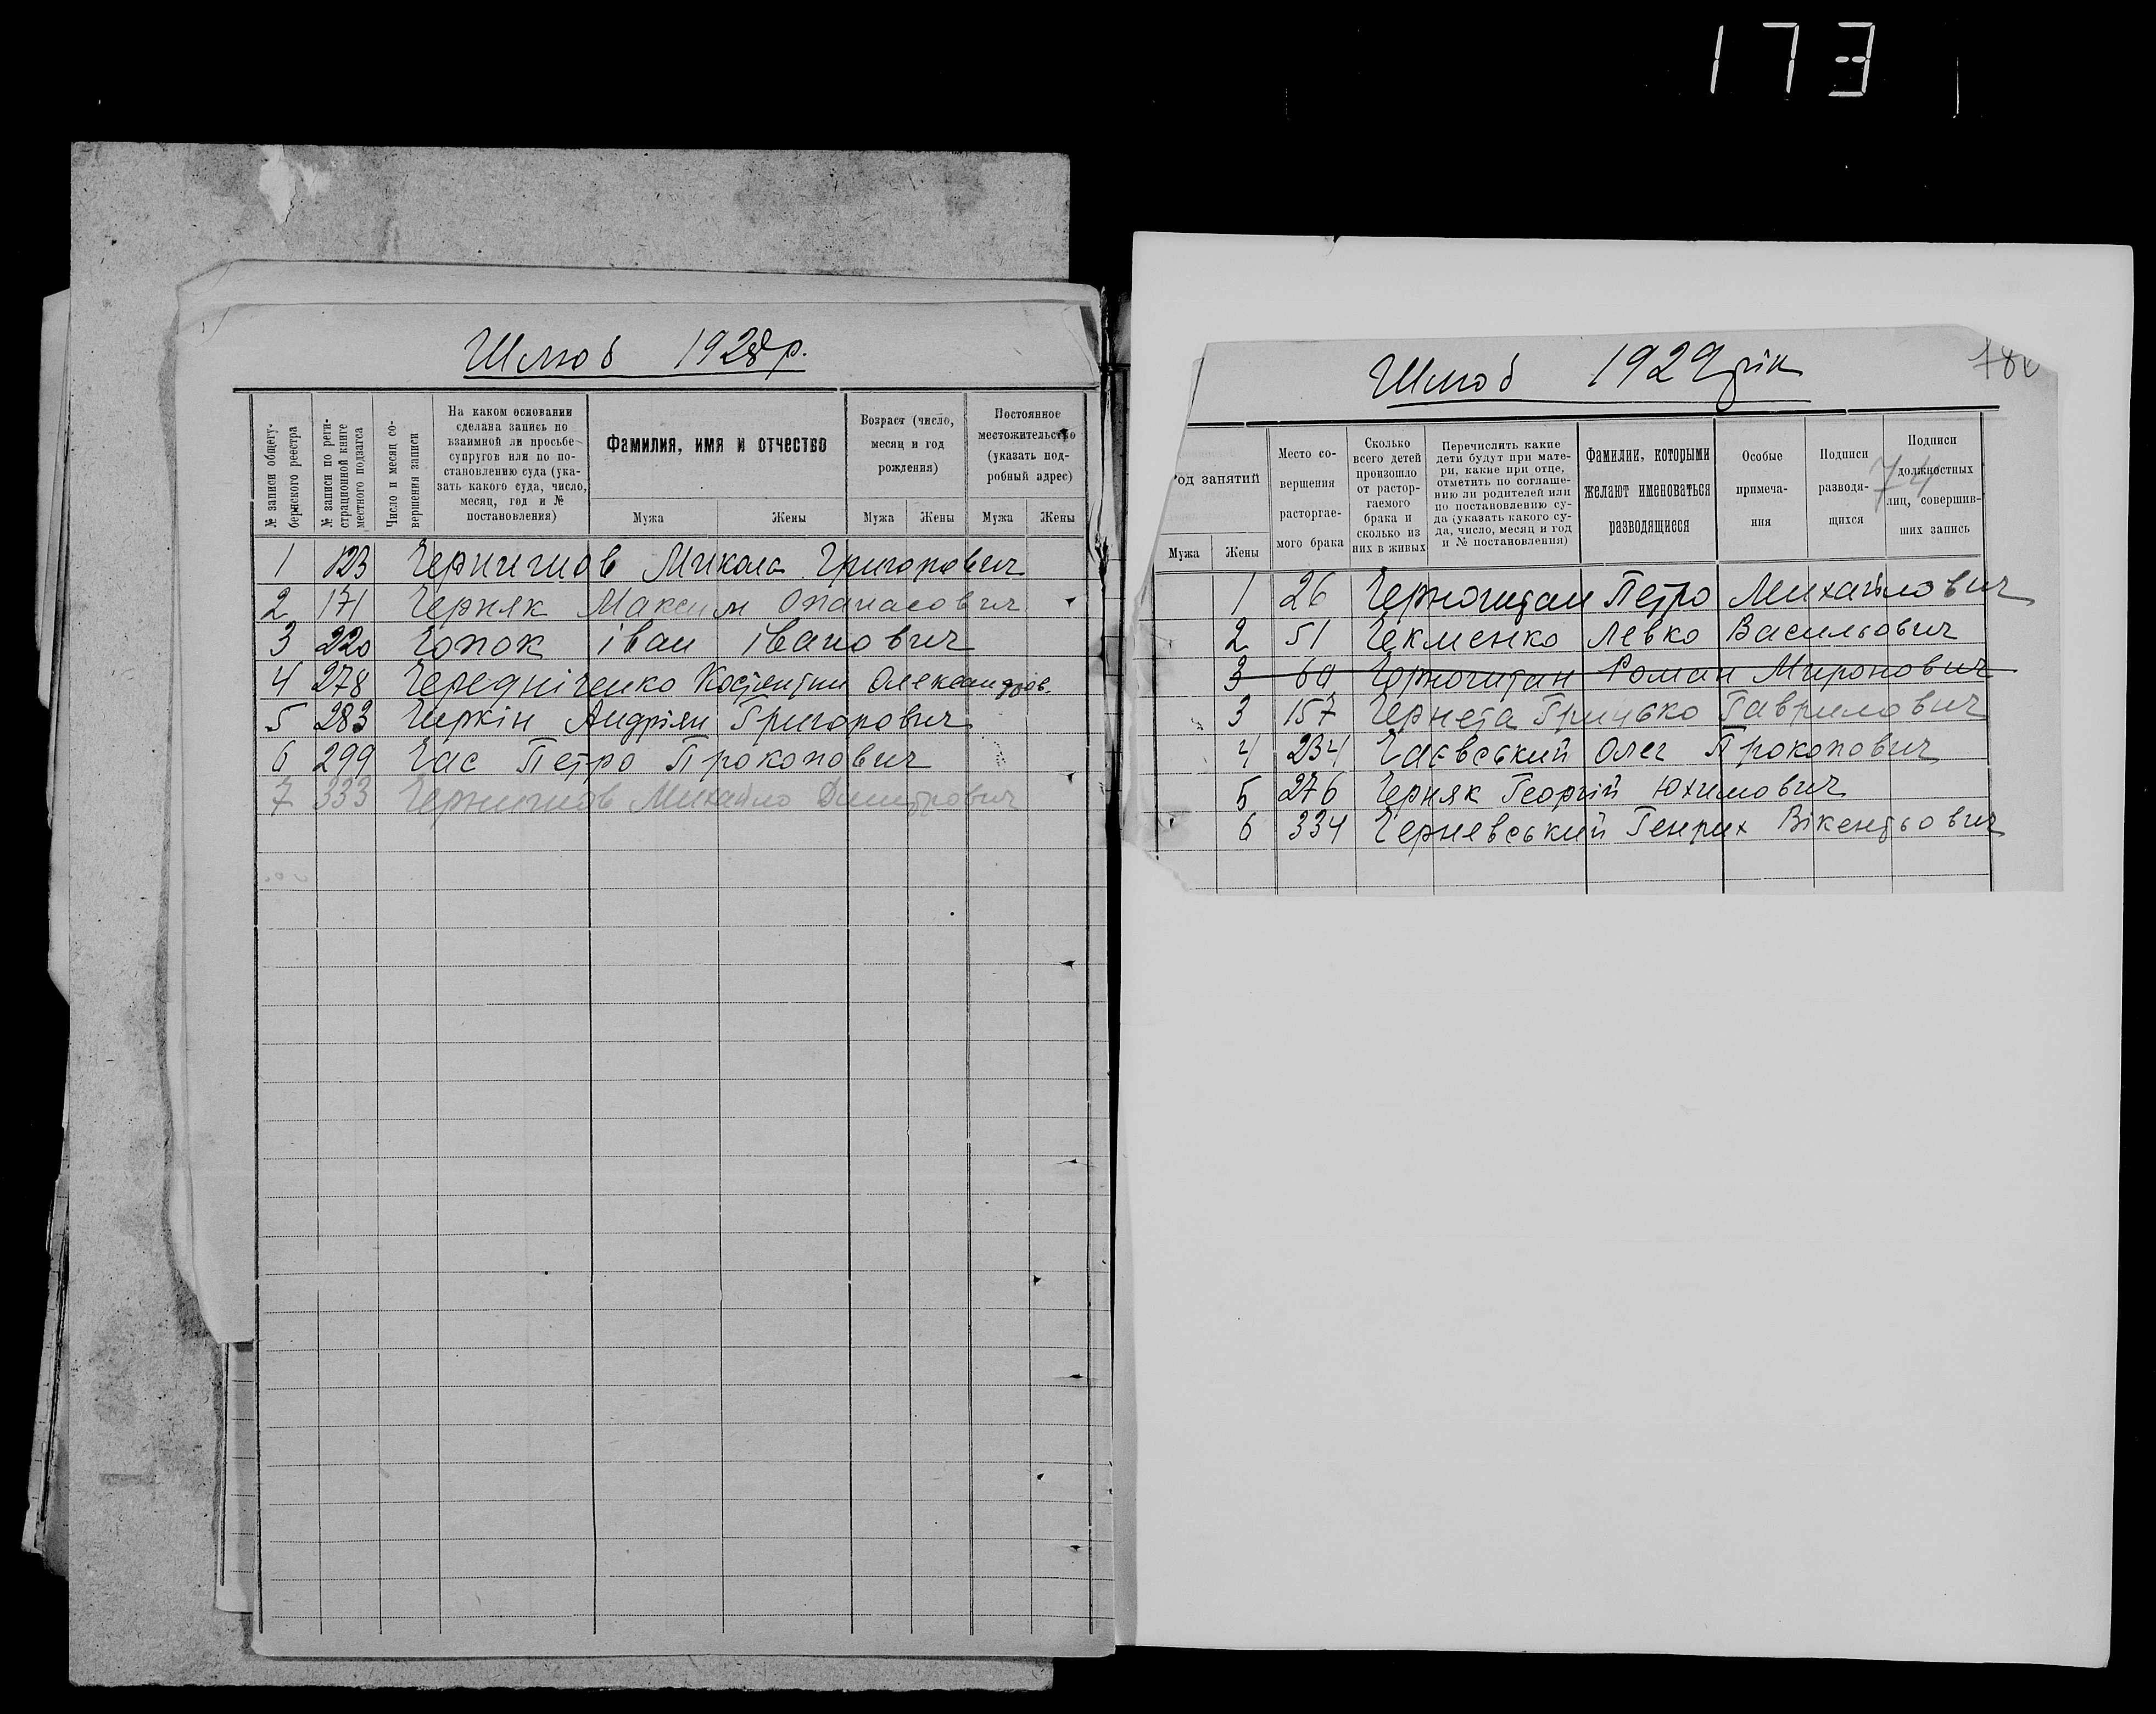 173
Шлюб 1928 р.
№ записи общегу-
бернского реестра
№ записи по реги-
страционной книге
местного подзагса
Число и месяц со-
вершения записи
На каком основании
сделана запись по
взаимной ли просьбе
супругов или по по-
становлению суда (ука-
зать какого суда, число,
месяц, год и №
постановления)
Фамилия, имя и отчество
Мужа Жены
Возраст (число,
месяц и год
рождения)
Мужа Жены
Постоянное
местожительство
(указать под-
робный адрес)
Мужа Жены
1 123 Чернигов Микола Григорович
2 171 Черняк Максим Опанасович
3 220 Чопок іван іванович
4 278 Чередніченко Костентин Олександров.
5 283 Чиркін Андріян Григорович
6 299 Час Петро Прокопович
7 333 Чернигов Михайло Дмитрович
Шлюб 1929 рік
74
од занятий
Мужа Жены
Место со-
вершения
расторгае-
мого брака
Сколько
всего детей
произошло
от растор-
гаемого
брака и
сколько из
них в живых
Перечислить какие
дети будут при мате-
ри, какие при отце,
отметить по соглаше-
нию ли родителей или
по постановлению су-
да (указать какого су-
да, число, месяц и год
и № постановления)
Фамилии, которыми
желают именоваться
разводящиеся
Особые
примеча-
ния
Подписи
разводя-
щихся
Подписи
должностных
лиц, совершив-
ших запись
1 26 Чорноштан Петро Михайлович
2 51 Чекменко Левко Васильович
3 69 Чорноштан Роман Миронович
3 157 Чернета Грицько Гаврилович
4 234 Чаєвський Олег Прокопович
5 276 Черняк Георгій Юхимович
6 334 Черневський Генрих Вікентьович